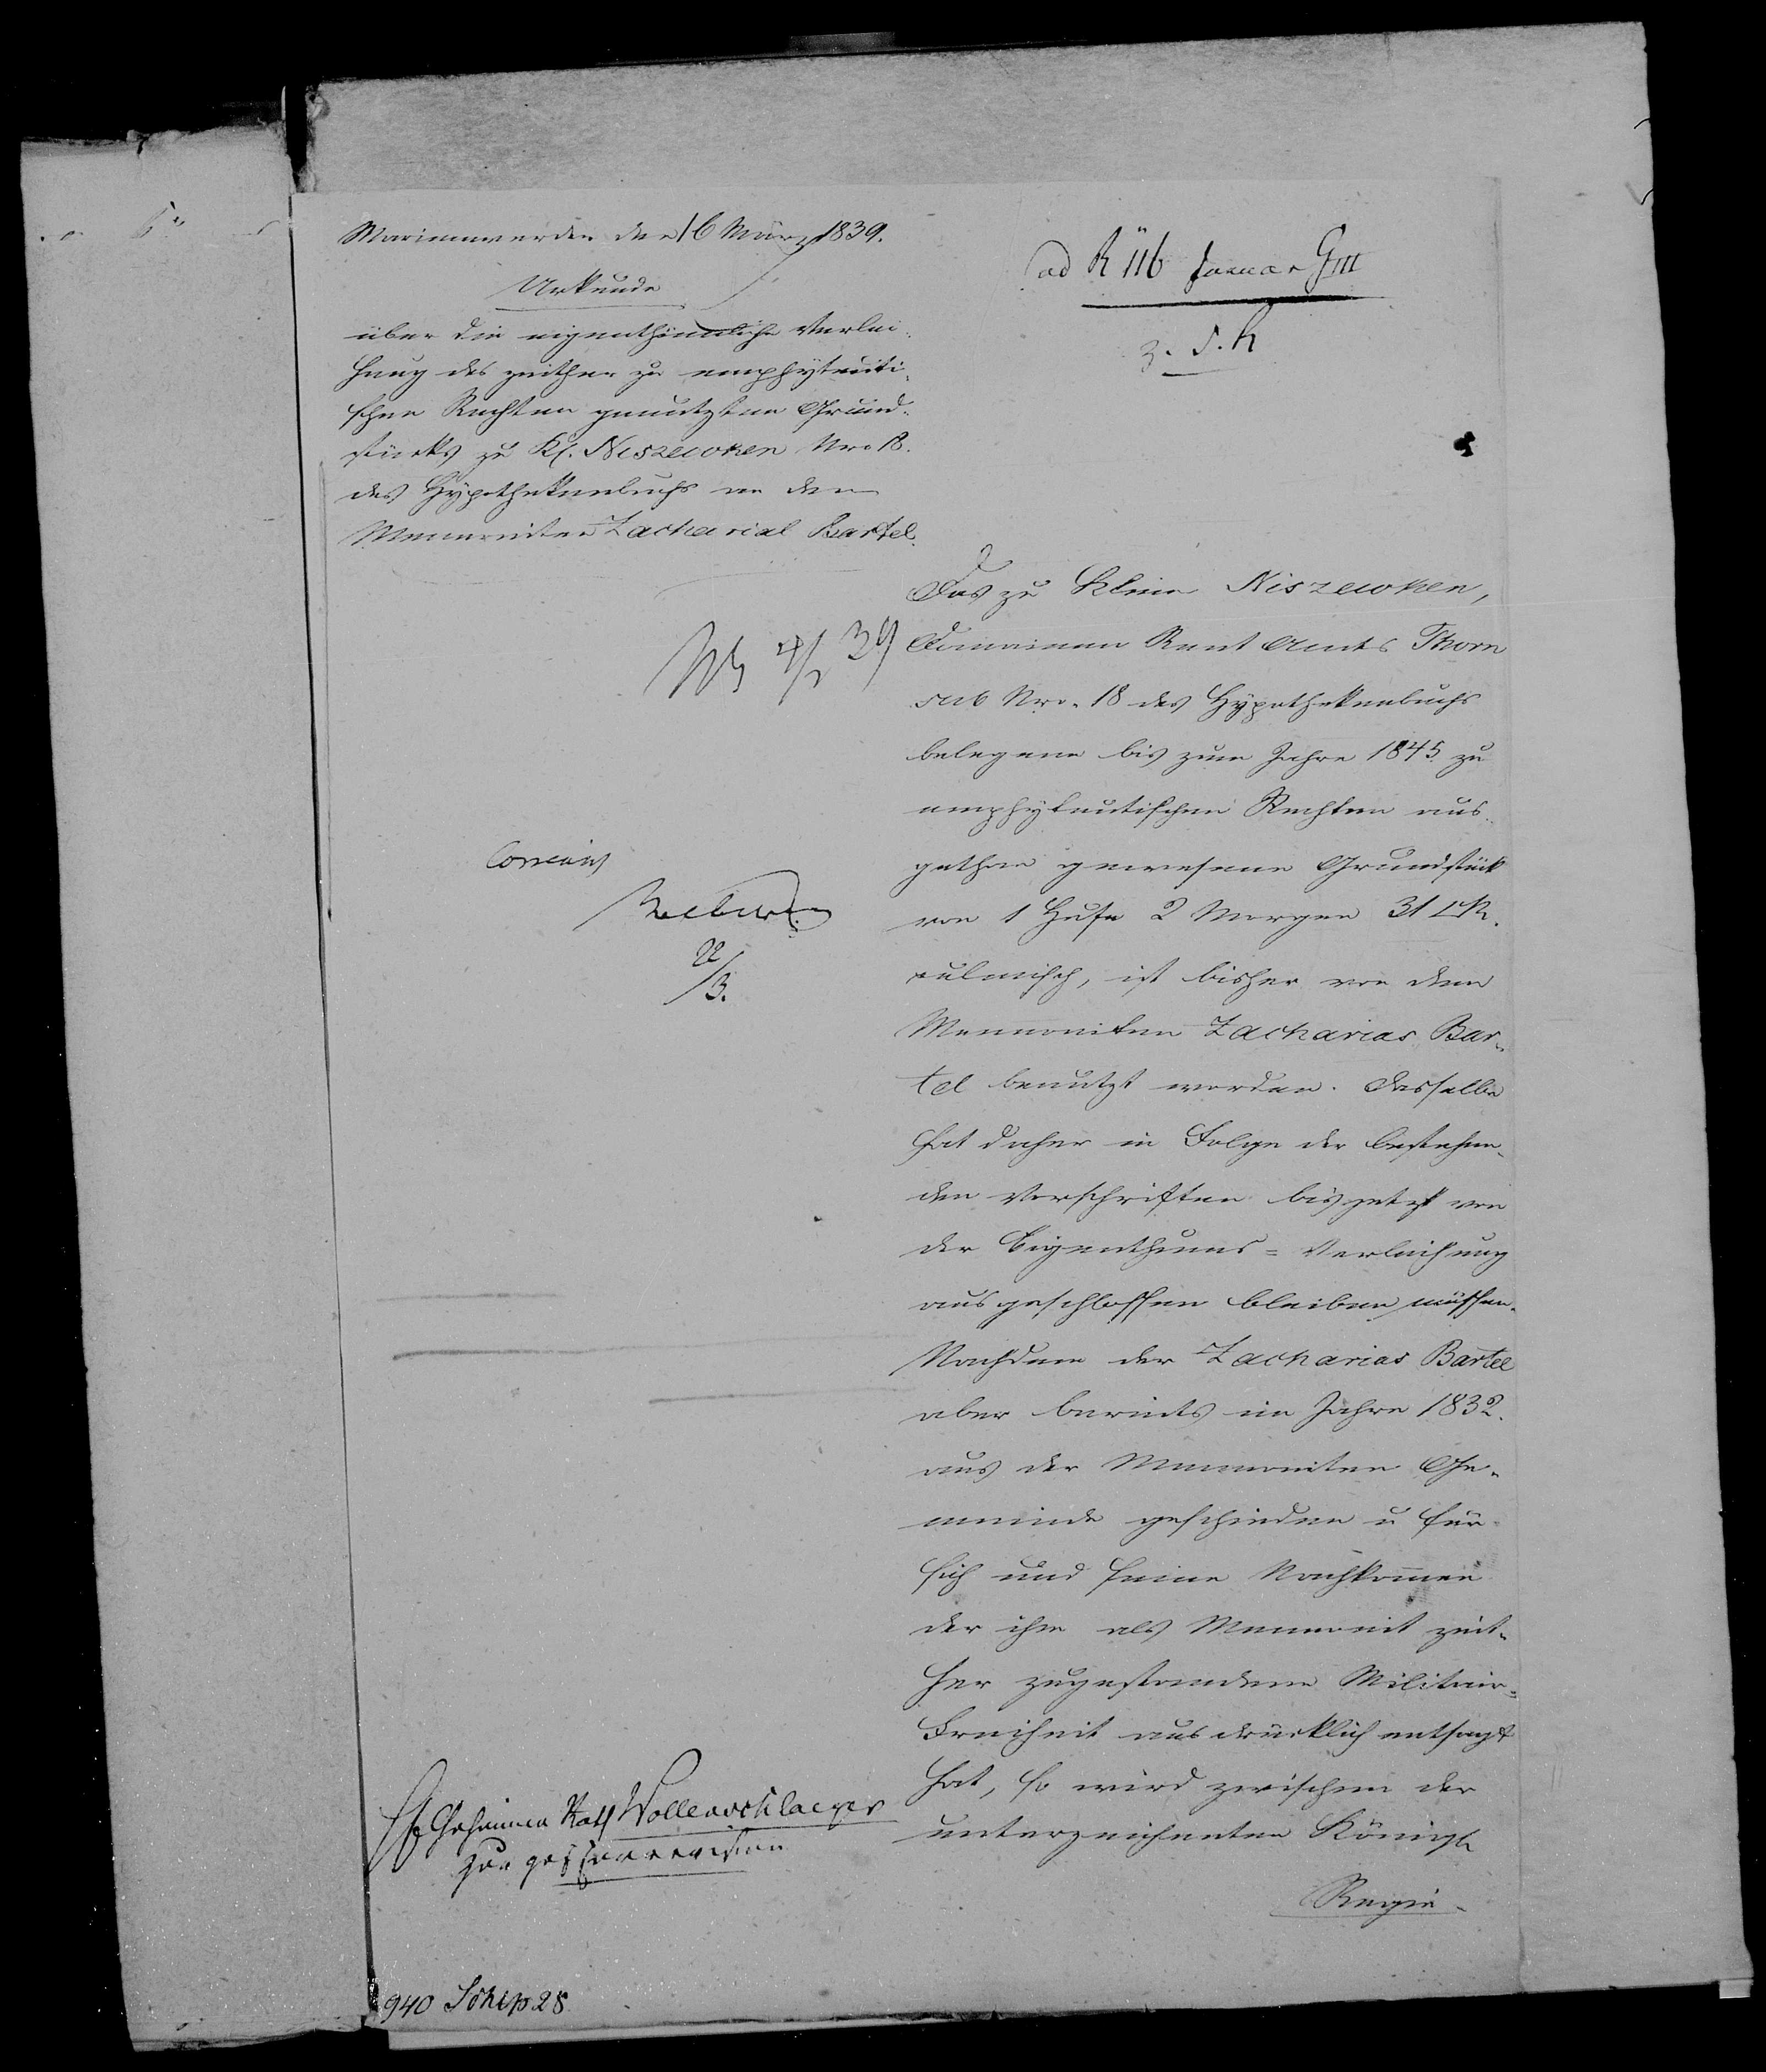 Marienwerder den 16 März 1839.
Urkunde
über die eigenthümliche Verlei-
hung des zeither zu emphyteuti-
schen Rechten genutzten Grund-
stücks zu Kl. Niszewken Nro 18.
des Hypothekenbuchs an den
Mennoniten Zacharias Bartel.
ad R 116 Januar G III
z. d. A
Das zu Klein Niszewken,
Domainen Rent Amts Thorn
sub Nro. 18 des Hypothekenbuchs
belegene bis zum Jahre 1845 zu
emphyteutischen Rechten aus-
gethan gewesene Grundstück
von 1 Hufe 2 Morgen 31 □R.
culmisch, ist bisher von dem
Mennoniten Zacharias Bar-
tel benutzt worden. Dasselbe
hat daher in Folge der bestehen-
den Vorschriften bis jetzt von
der Eigenthums=Verleihung
ausgeschlossen bleiben müssen.
Nachdem der Zacharias Bartel
aber bereits im Jahre 1832.
aus der Mennoniten Ge-
meinde geschieden u für
sich und seine Nachkommen
der ihm als Mennonit zeit-
her zugestandenen Militair-
Freiheit ausdrücklich entsagt
hat, so wird zwischen der
unterzeichneten Königl
Regie-
22/3.
H Geheimen Rath Wollenschlaeger
zur gef
940
28